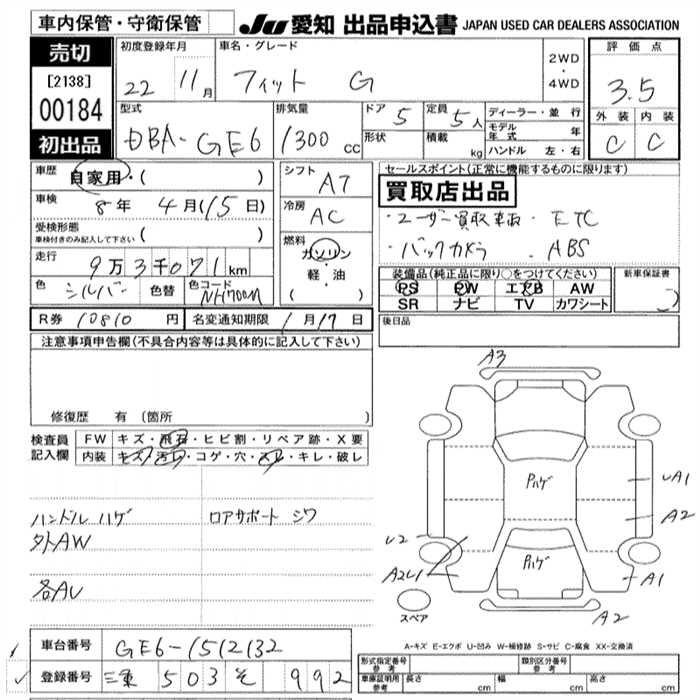 車内保管・守衛保管
JU 愛知 出品申込書 JAPAN USED CAR DEALERS ASSOCIATION
売切
[2138]
00184
初出品
初度登録年月 車名・グレード
22 11月 フィット G
2WD
・
4WD
評価点
3.5
外装 内装
C C
型式 排気量 ドア 5 定員 5人
DBA-GE6 1300cc
形状 積載 kg
ディーラー・並行
モデル年式 年
ハンドル 左・右
車歴 自家用・( )
車検 8年 4月(15日)
受検形態
車検付きのみ記入して下さい ( )
走行 9万3千071km
色 シルバー 色替 色コード NH700M
シフト AT
冷房 AC
燃料 ガソリン
・
軽・油
( )
セールスポイント(正常に機能するものに限ります)
買取店出品
・ユーザー買取車両 ・ETC
・バックカメラ ・ABS
装備品(純正品に限り○をつけてください)
PS PW エアB AW
SR ナビ TV カワシート
新車保証書
R券 10810円 名変通知期限 1月17日
後日品
注意事項申告欄(不具合内容等は具体的に記入して下さい)
修復歴 有(箇所
検査員記入欄
FW キズ・飛石・ヒビ割・リペア跡・X要
内装 キズ・汚れ・コゲ・穴・スレ・キレ・破レ
ハンドル ハゲ ロアサポート シワ
外AW
各AU
A3
Pハゲ
Pハゲ
UA1
A2
A1
A2
U2
A2U1
スペア
A-キズ E-エクボ U-凹み W-補修跡 S-サビ C-腐食 XX-交換済
車台番号 GE6-1512132
登録番号 三重 503 そ 992
形式指定番号 参考 類別区分番号 参考
車庫証明用 参考 長さ cm 幅 cm 高さ cm